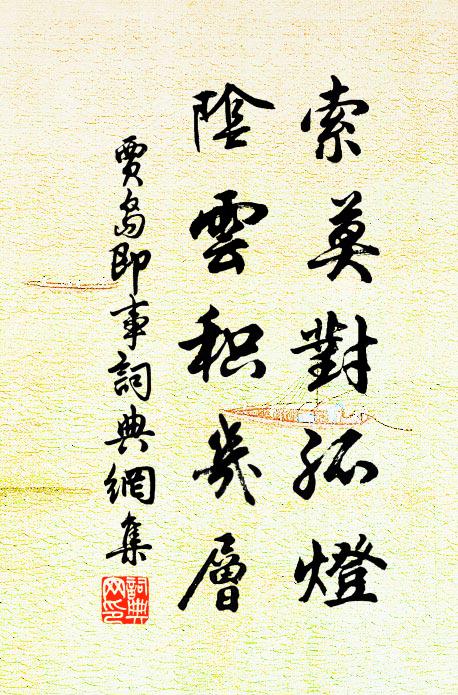 索莫對孤燈
陰雲积幾層
賈島即事詞典網集
詞典
网印